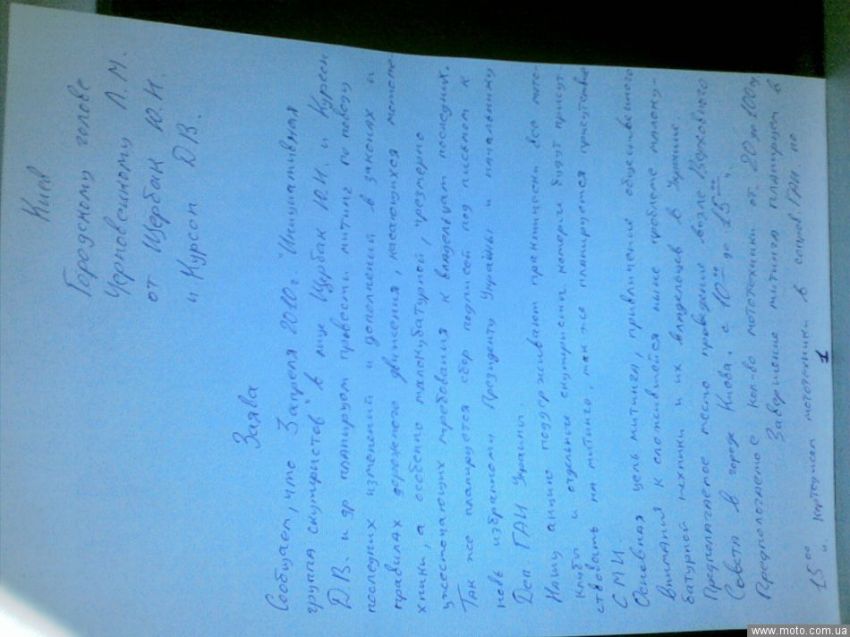 Киев
Городскому голове
Черновецкому Л.М.
от Щербак Ю.Н.
и Курсон Д.В.
Заява
Сообщаем, что 3 апреля 2010г "Инициативная
группа скутеристов" в лице Щербак Ю.Н. и Курсон
Д.В. и др планируем провести митинг по поводу
последних изменений и дополнений в законах и
правилах дорожного движения, касающихся мототе-
хники, а особенно малокубатурной, чрезмерно
ужесточающих требования к владельцам последних.
Так же планируется сбор подписей под письмом к
ново избранному Президенту Украины и начальнику
Деп. ГАИ Украины.
Нашу акцию поддерживают практически все мото-
клубы и отдельные скутеристы которые будут присут-
ствовать на митинге, так же планируется присутствие
СМИ.
Основная цель митинга, привличение общественного
внимания к сложившейся ныне проблеме малоку-
батурной техники и их владельцев в Украине.
Предпологаемое место проведение возле Верховного
Совета в городе Киева. с 10⁰⁰ до 15⁰⁰.
Предпологаемое кол-во мототехники от 20 до 100
Завершение митинга планируем в
15⁰⁰ и мототехники в ГАИ по
1
www.moto.com.ua